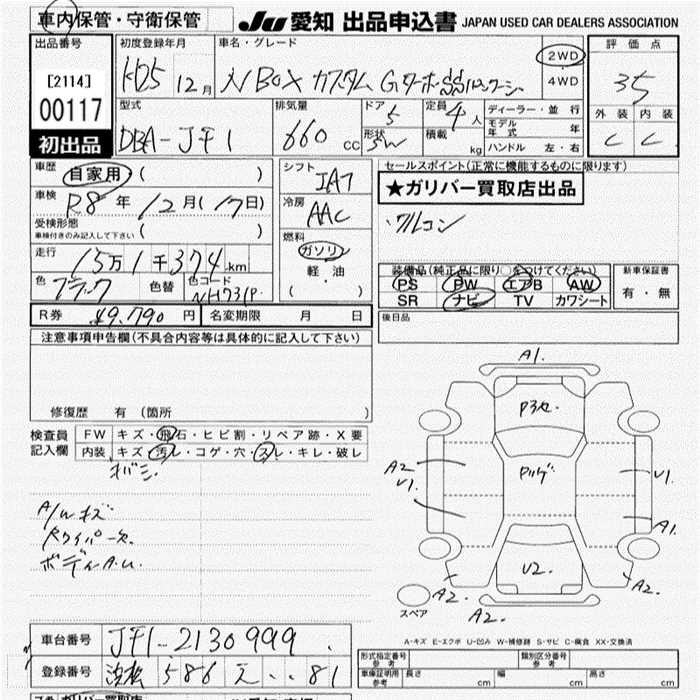 車内保管・守衛保管
JU 愛知 出品申込書 JAPAN USED CAR DEALERS ASSOCIATION
出品番号 初度登録年月 車名・グレード 評価点
[2114] H25 12月 N BOX カスタム Gターボ SSパッケージ 2WD 35
00117 4WD
型式 排気量 ドア 5 定員 4人 ディーラー・並行 外装 内装
初出品 DBA-JF1 660 cc 形状 5W 積載 kg モデル年式 年 C C
ハンドル 左・右
車歴 自家用 ( ) シフト IAT セールスポイント(正常に機能するものに限ります)
車検 R8年 12月(17日) 冷房 AAC ★ガリバー買取店出品
受検形態 ( )
車検付きのみ記入して下さい
燃料 フルレコン
走行 15万1千374km ガソリン
色 ブラック 色替 色コード NH731P 軽油
( )
装備品(純正品に限り○をつけてください) 新車保証書
PS PW エアB AW 有・無
SR ナビ TV カワシート
R券 ¥9,790円 名変期限 月 日 後日品
注意事項申告欄(不具合内容等は具体的に記入して下さい)
修復歴 有 (箇所 )
検査員 FW キズ・飛石・ヒビ割・リペア跡・X要
記入欄 内装 キズ・汚レ・コゲ・穴・スレ・キレ・破レ
A/Wキズ
ボディA.U.
A1.
A2
U1. U1.
A1.
U2.
A2. A2.
スペア A2.
A-キズ E-エクボ U-凹み W-補修跡 S-サビ C-腐食 XX-交換済
車台番号 JF1-2130999
登録番号 浜松 586 え ・・81
形式指定番号 参考 類別区分番号 参考
車庫証明用 参考 長さ cm 幅 cm 高さ cm
ガリバー買取店